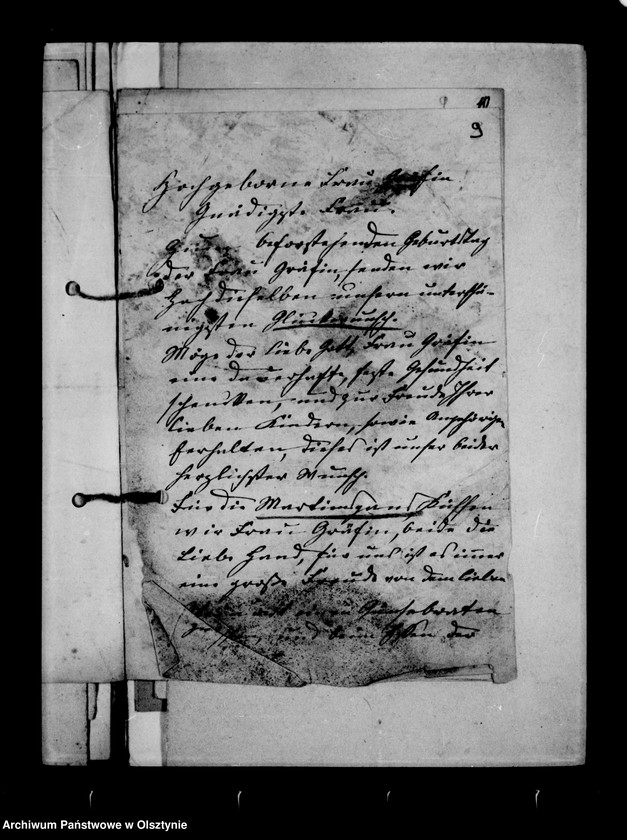 40
9
Hochgeborne Frau Gräfin
Gnädigste Frau.
Zum bevorstehenden Geburtstag
der Frau Gräfin, senden wir
Hochdieselben unsern unterthä-
nigsten Glückwunsch.
Möge der liebe Gott, Frau Gräfin
eine dauerhafte, feste Gesundheit
schenken, und zur Freude Ihrer
lieben Kindern, sowie Angehörigen
erhalten, dieses ist unser beider
herzlichster Wunsch.
Für die Martinsgans Küssen
wir Frau Gräfin, beide die
Liebe Hand, für uns ist es immer
eine große Freude von dem lieben
Gänsebraten
und beim Essen der
Archiwum Państwowe w Olsztynie